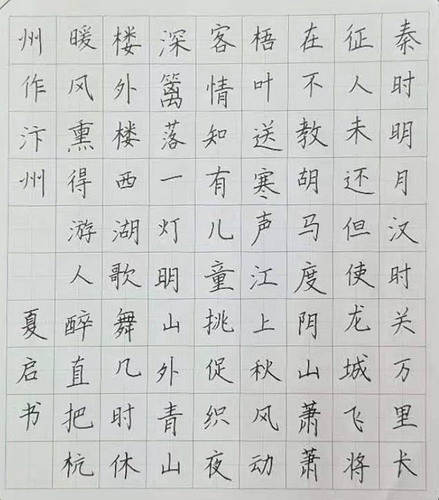 秦时明月汉时关万里长
征人未还但使龙城飞将
在不教胡马度阴山萧萧
梧叶送寒声江上秋风动
客情知有儿童挑促织夜
深篱落一灯明山外青山
楼外楼西湖歌舞几时休
暖风熏得游人醉直把杭
州作汴州 夏启书